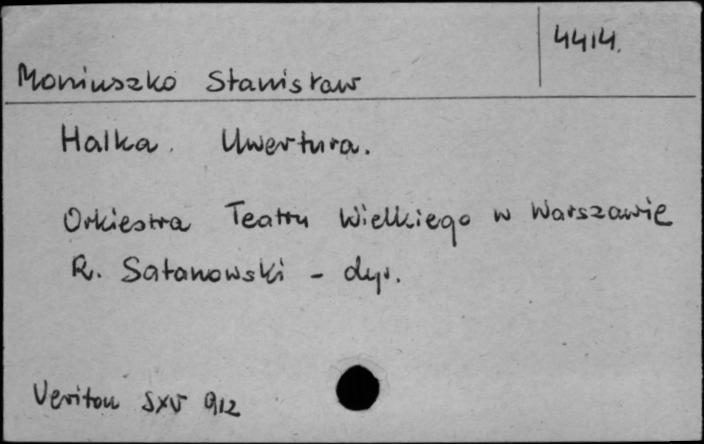 4414.
Moniuszko Stanisław
Halka. Uwertura.
Orkiestra Teatru Wielkiego w Warszawie
R. Satanowski - dyr.
Veriton SXV 912